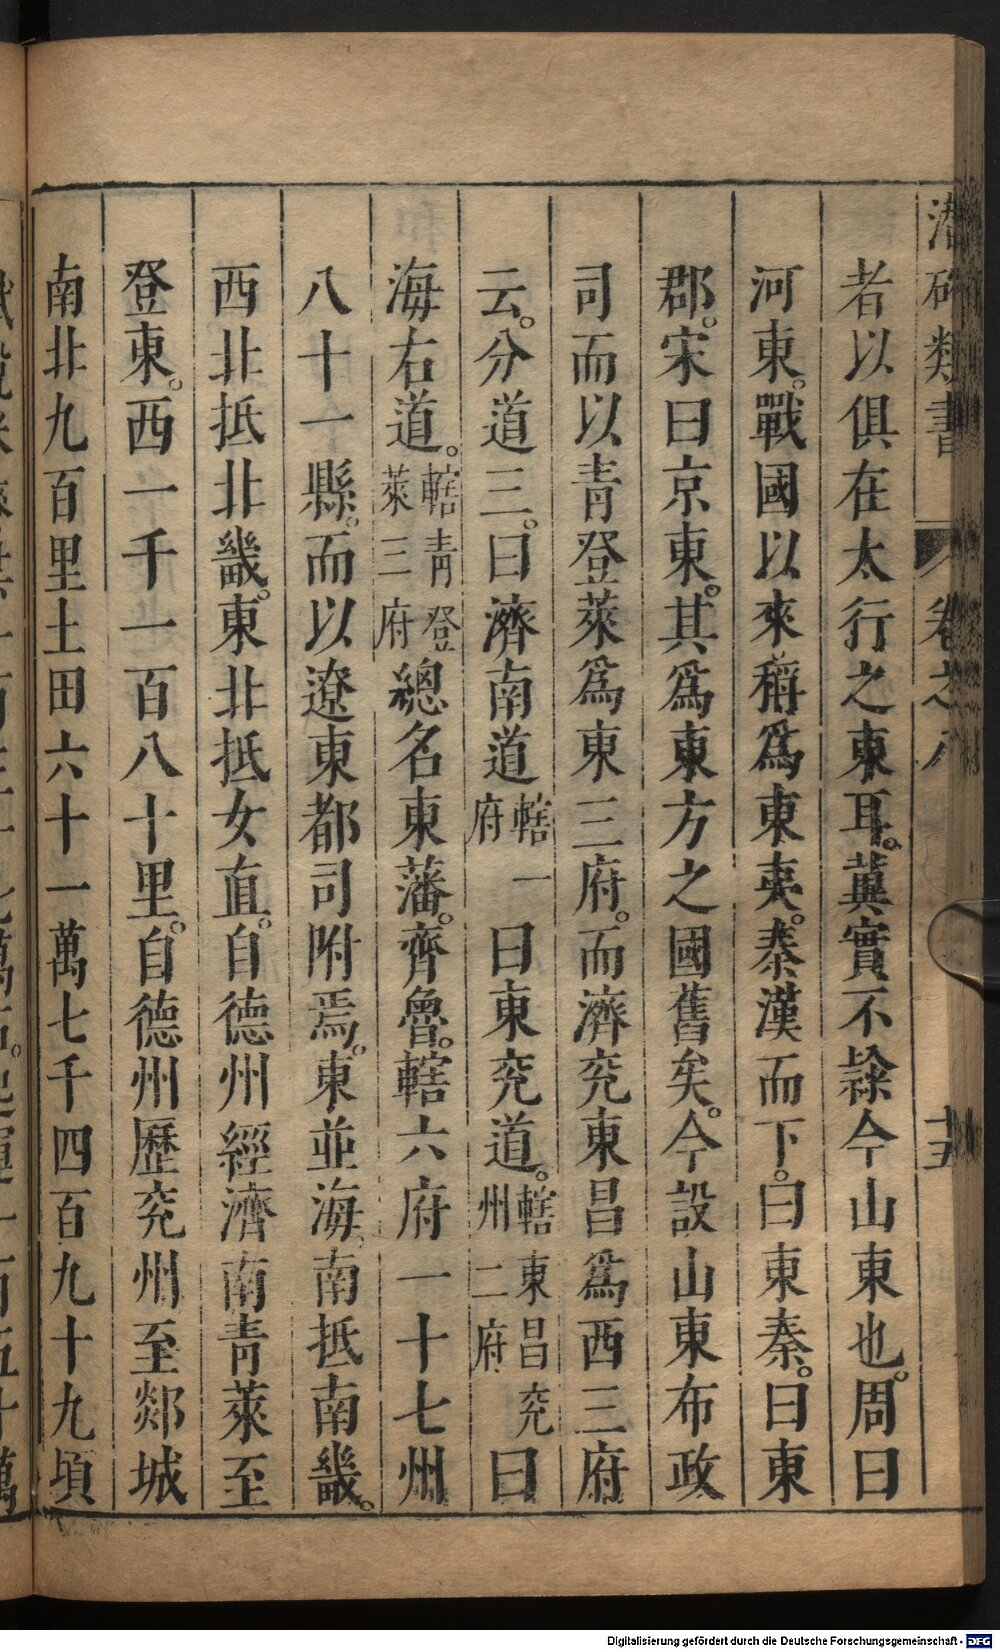 潛研類書 卷之八 十五
者以俱在太行之東耳。冀實不隸今山東也。周曰
河東。戰國以來稱爲東夷。秦漢而下。曰東秦。曰東
郡。宋曰京東。其爲東方之國舊矣。今設山東布政
司而以青登萊爲東三府。而濟兗東昌爲西三府
云。分道三。曰濟南道轄一府曰東兗道。轄東昌兗州二府曰
海右道。轄青登萊三府總名東藩。齊魯。轄六府一十七州
八十一縣。而以遼東都司附焉。東並海南抵南畿。
西北抵北畿。東北抵女直。自德州經濟南青萊至
登東。西一千一百八十里。自德州歷兗州至郯城
南北九百里土田六十一萬七千四百九十九頃
Digitalisierung gefördert durch die Deutsche Forschungsgemeinschaft - DFG